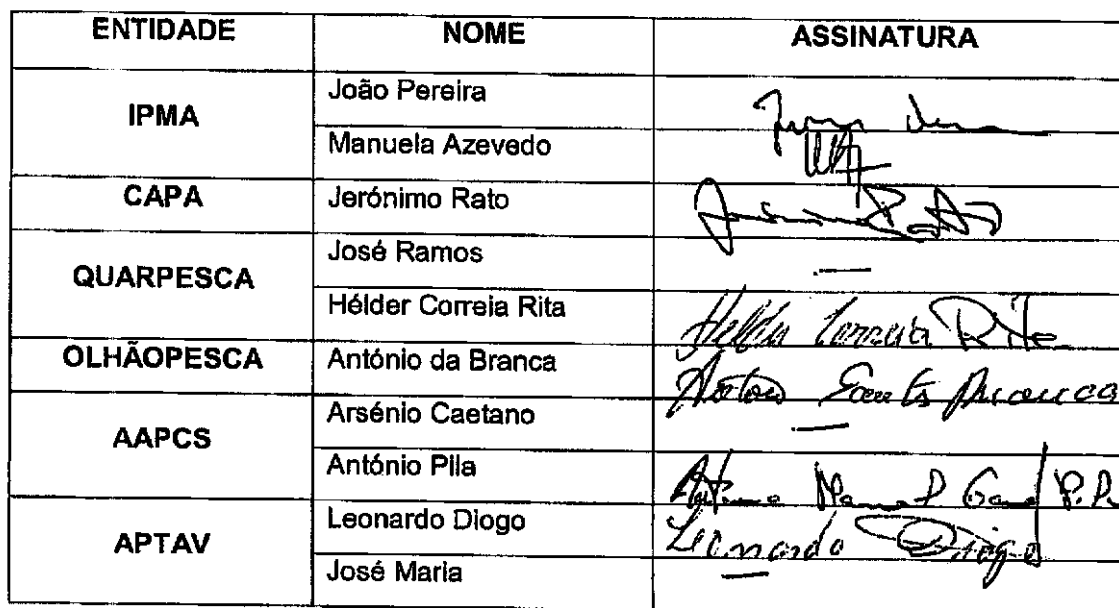 ENTIDADE NOME ASSINATURA
IPMA João Pereira
Manuela Azevedo
CAPA Jerónimo Rato
QUARPESCA José Ramos —
Hélder Correia Rita Helder Correia Rita
OLHÃOPESCA António da Branca
AAPCS Arsénio Caetano —
António Pila
APTAV Leonardo Diogo Leonardo Diogo
José Maria —